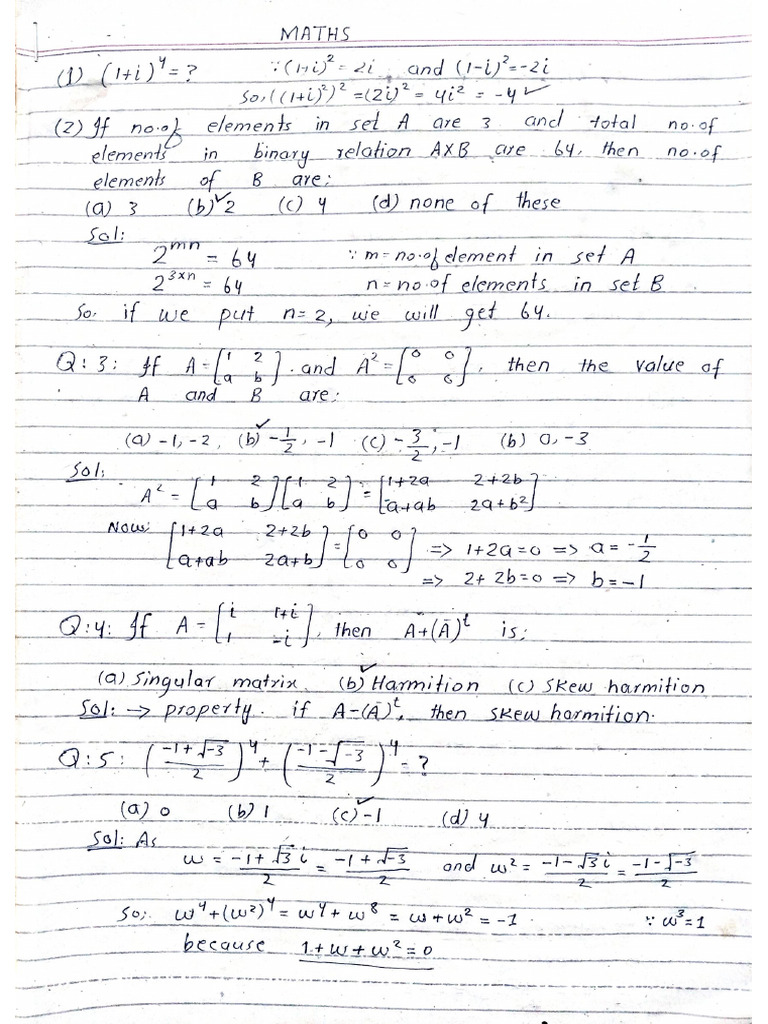 MATHS
(1) (1+i)⁴=? ∵(1+i)²=2i and (1-i)²=-2i
So,((1+i)²)²=(2i)²=4i²=-4✓
(2) If no.of elements in set A are 3 and total no.of
elements in binary relation A×B are 64, then no.of
elements of B are:
(a) 3 (b)✓2 (c) 4 (d) none of these
Sol:
2^mn = 64 ∵ m=no.of element in set A
2^3×n = 64 n=no.of elements in set B
So. if we put n=2, we will get 64.
Q:3: If A=[1 2 . and A²=[0 0 , then the value of
a b] 0 0]
A and B are:
(a) -1,-2, (b)✓-1/2, -1 (c) -3/2,-1 (b) 0,-3
Sol:
A² = [1 2 [1 2 = [1+2a 2+2b
a b] a b] a+ab 2a+b²]
Now: [1+2a 2+2b = [0 0
a+ab 2a+b] 0 0] => 1+2a=0 => a=-1/2
=> 2+2b=0 => b=-1
Q:4: If A = [i 1+i , then A+(Ā)ᵗ is:
1 -i]
(a) Singular matrix (b)✓Harmition (c) Skew harmition
Sol: → property. if A-(Ā)ᵗ, then skew harmition.
Q:5: (-1+√-3/2)⁴+(-1-√-3/2)⁴=?
(a) 0 (b) 1 (c)✓-1 (d) 4
Sol: As
w = -1+√3 i/2 = -1+√-3/2 and w² = -1-√3 i/2 = -1-√-3/2
So; w⁴+(w²)⁴ = w⁴+w⁸ = w+w² = -1 ∵ w³=1
because 1+w+w²=0